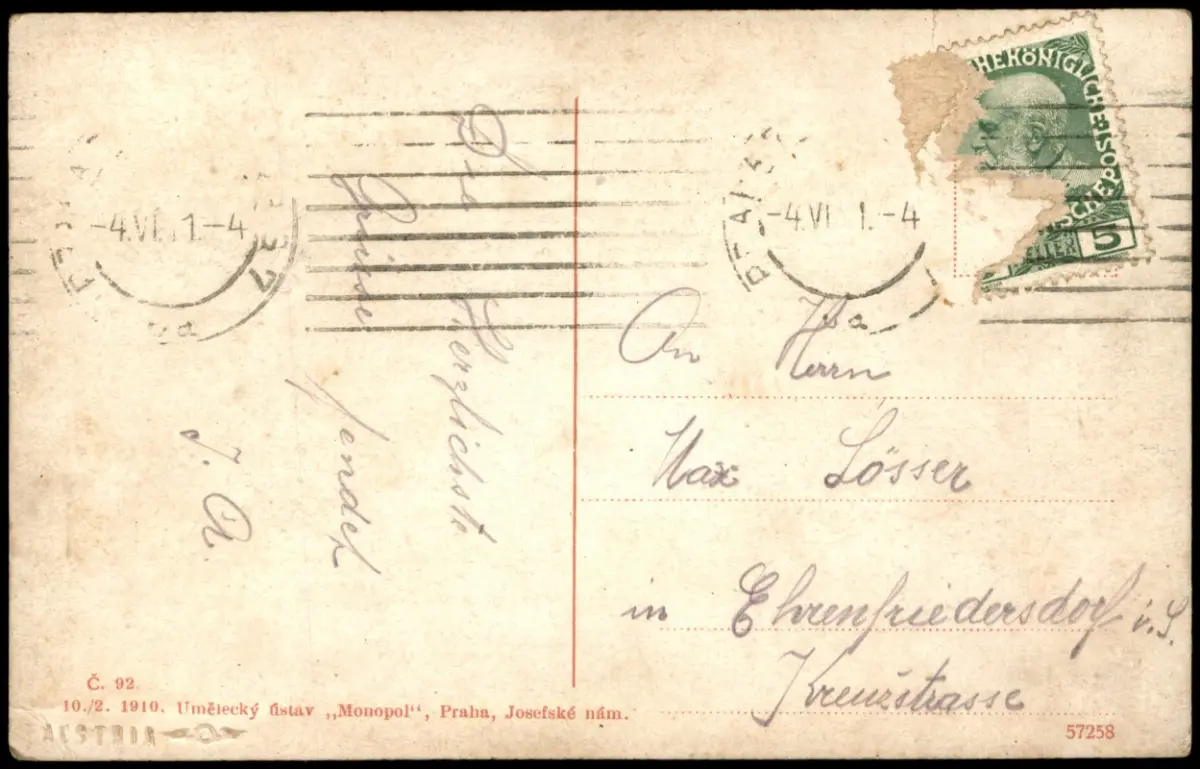 Die Herzlichste
Grüsse sendet
J. A.
Č. 92
10./2. 1910. Umělecký ústav „Monopol“, Praha, Josefské nám.
AUSTRIA
-4.VI. 1.-4
-4.VI 1.-4
HEKÖNIGLICHE
POST
5
An Herrn
Max Lösser
in Ehrenfriedersdorf i. S.
Kreuzstrasse
57258